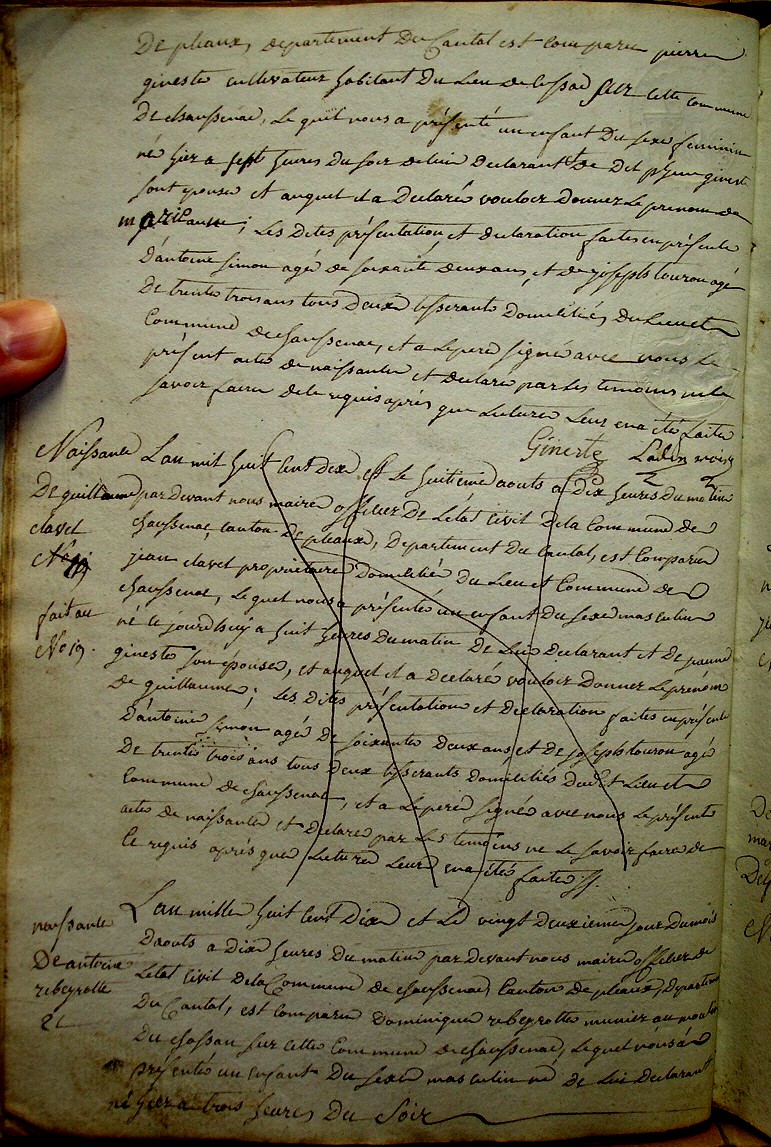 De pleaux, departement Du Cantal est comparu pierre
gineste cultivateur habitant Du Lieu de Cessac sur cette commune
De chaussenac, Le quel nous a présenté un enfant Du sexe feminin
né hier a sept heures Du soir de lui Declarant et De gineste
son epouse et auquel il a Declaré vouloir Donner Le prenom de
marianne; Les Dites présentation et Declaration faites en présence
D'antoine simon agé de soixante deux ans, et de joseph touron agé
De trente trois ans tous Deux tisserants Domiciliés, Du Lieu et
Commune De chaussenac, et a Le pere signé avec nous Le
présent acte de naissance et Declaré par les temoins ne le
savoir faire de le requis aprés que Lecture Leur en a été faite
Gineste
Naissance
De guillaume
clavel
fait au
No 19.
L'an mil huit cent dix et le huitieme aouts a Dix heures Du matin
par devant nous maire officier De L'etat civil De la Commune de
chaussenac, canton de pleaux, Departement du Cantal, est Comparu
jean clavel proprietaire Domicilié Du Lieu et Commune De
chaussenac, Le quel nous a présenté un enfant Du sexe masculin
né ce jourdhuy a huit heures Du matin De Lui Declarant et De jeanne
gineste son épouse, et auquel il a Declaré vouloir Donner Le prénom
De guillaume; Les Dites présentation et Declaration faites en présence
D'antoine simon agé De soixante Deux ans et de joseph touron agé
De trente trois ans tous Deux tisserants domiciliés Dud. Lieu et
Commune De chaussenac, et a Le pere signé avec nous Le présent
acte de naissance et Declaré par Les temoins ne Le savoir faire de
Ce requis aprés que Lecture Leur en a été faite
naissance
De antoine
rebeyrotte
L'an mille huit cent Dix et Le vingt Deuxieme jour Du mois
D'aouts a Dix heures Du matin par devant nous maire officier de
L'etat civil De la Commune De chaussenac, Canton De pleaux, Departement
Du Cantal, est comparu Dominique rebeyrotte munier au moulin
Du sur cette Commune De chaussenac, Le quel nous a
présenté un enfant Du sexe masculin né de Lui Declarant
né hier a trois heures Du Soir